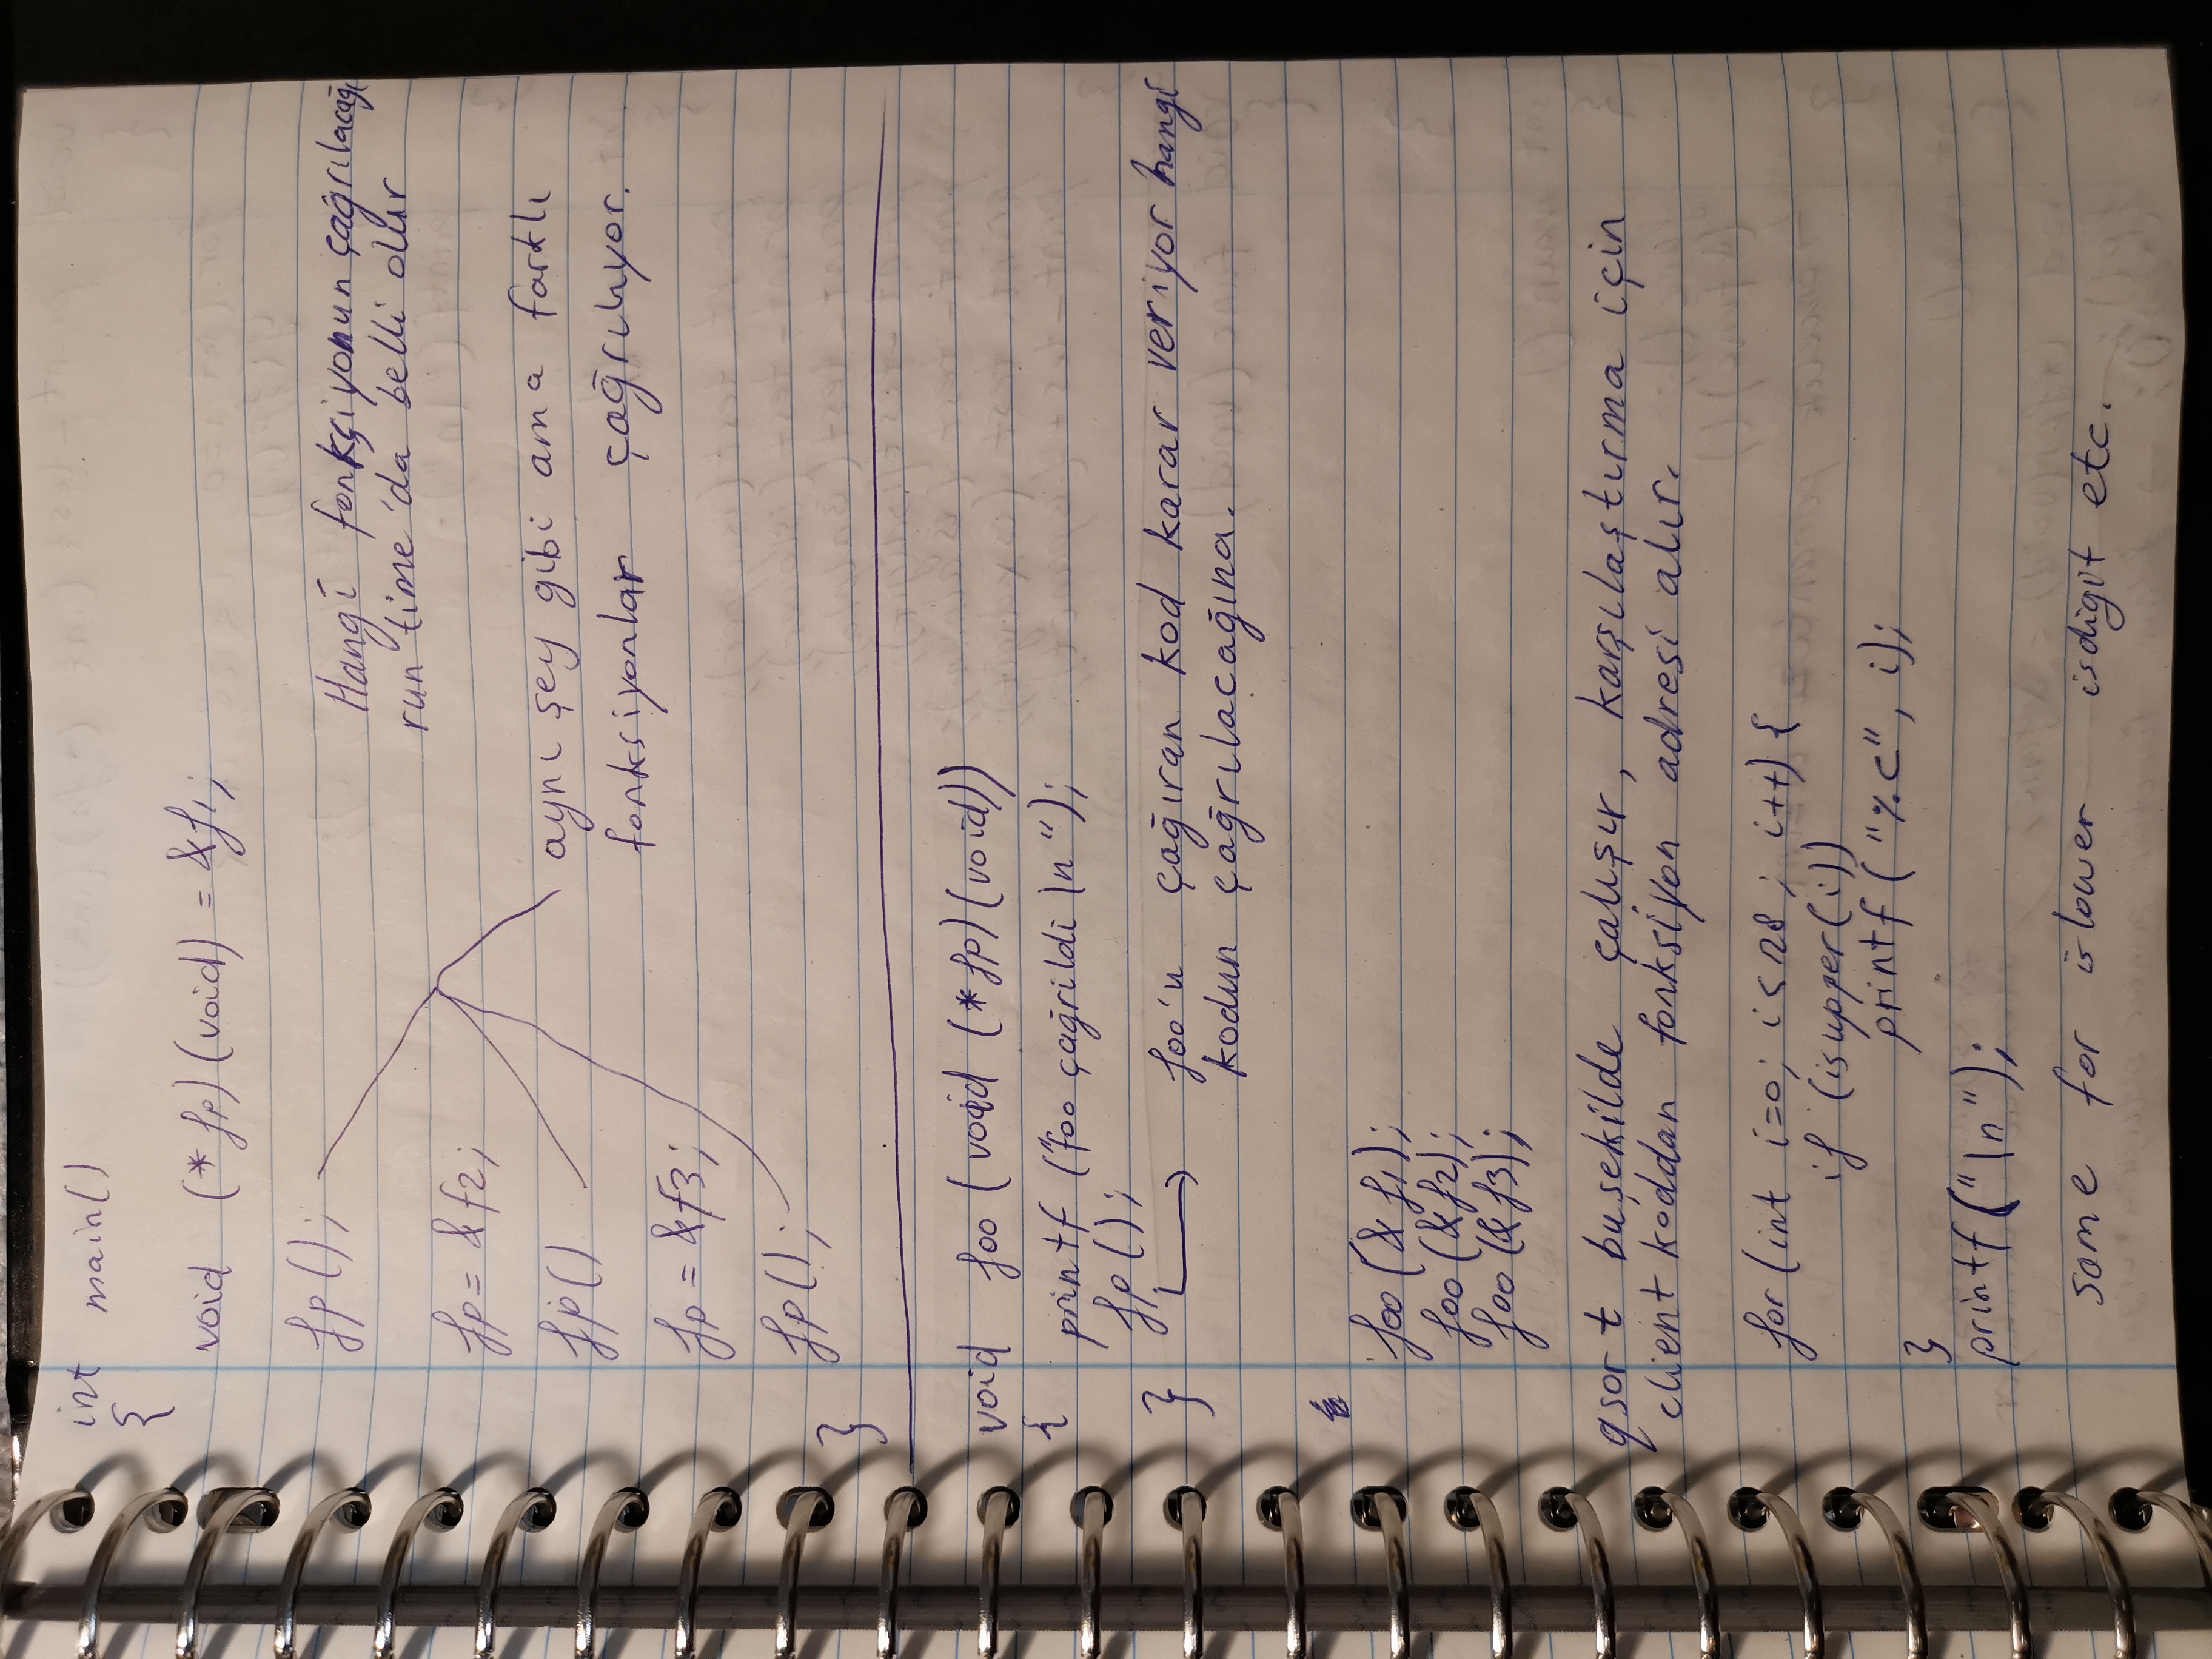 int main()
{
void (*fp)(void) = &f1;
fp();
Hangi fonkşiyonun çağrılacağı
run time'da belli olur
fp = &f2;
fp()
aynı şey gibi ama farklı
fonksiyonlar çağrılıyor.
fp = &f3;
fp();
}
void foo (void (*fp)(void))
{
printf ("foo çağrildi \n");
fp();
}
foo'u çağıran kod karar veriyor hangi
kodun çağrılacağına.
foo (&f1);
foo (&f2);
foo (&f3);
qsort bu şekilde çalışır, karşılaştırma için
client koddan fonksiyon adresi alır.
for (int i=0; i<128; i++) {
if (isupper(i))
printf ("%c", i);
}
printf ("\n");
same for islower isdigit etc.